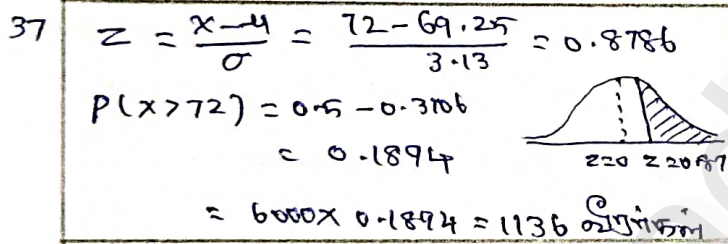 37 z = x-μ/σ = 72-69.25/3.13 = 0.8786
P(x>72) = 0.5 - 0.3106
= 0.1894
z=0 z=0.87
= 6000 x 0.1894 = 1136 வீரர்கள்